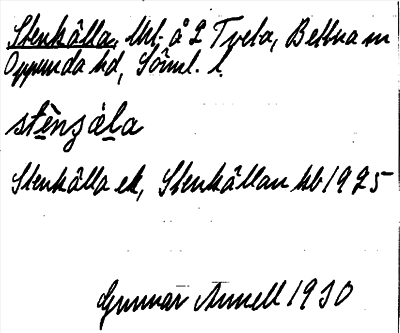 Stenkälla, lht. å 2 Tveta, Bettna sn
Oppunda hd, Söml. l.
stènʒǽla
Stenkälla ek, Stenkällan hb 1925
Gunnar Annell 1930